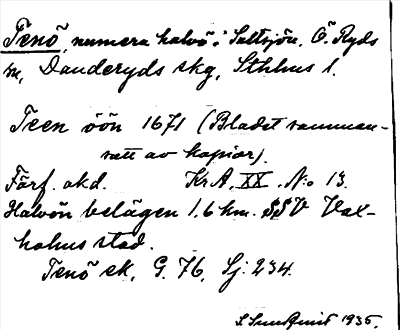 Tenö, numera halvö i Saltsjön, Ö. Ryds
sn, Danderyds skg, Sthlms l.
Teen öön 1671 (Bladet samman-
satt av kopior).
Förf. okd. KrA, XX, No 13.
Halvön belägen 1,6 km. SSV Vax-
holms stad.
Tenö ek, G. 76, Sj: 234.
1935.